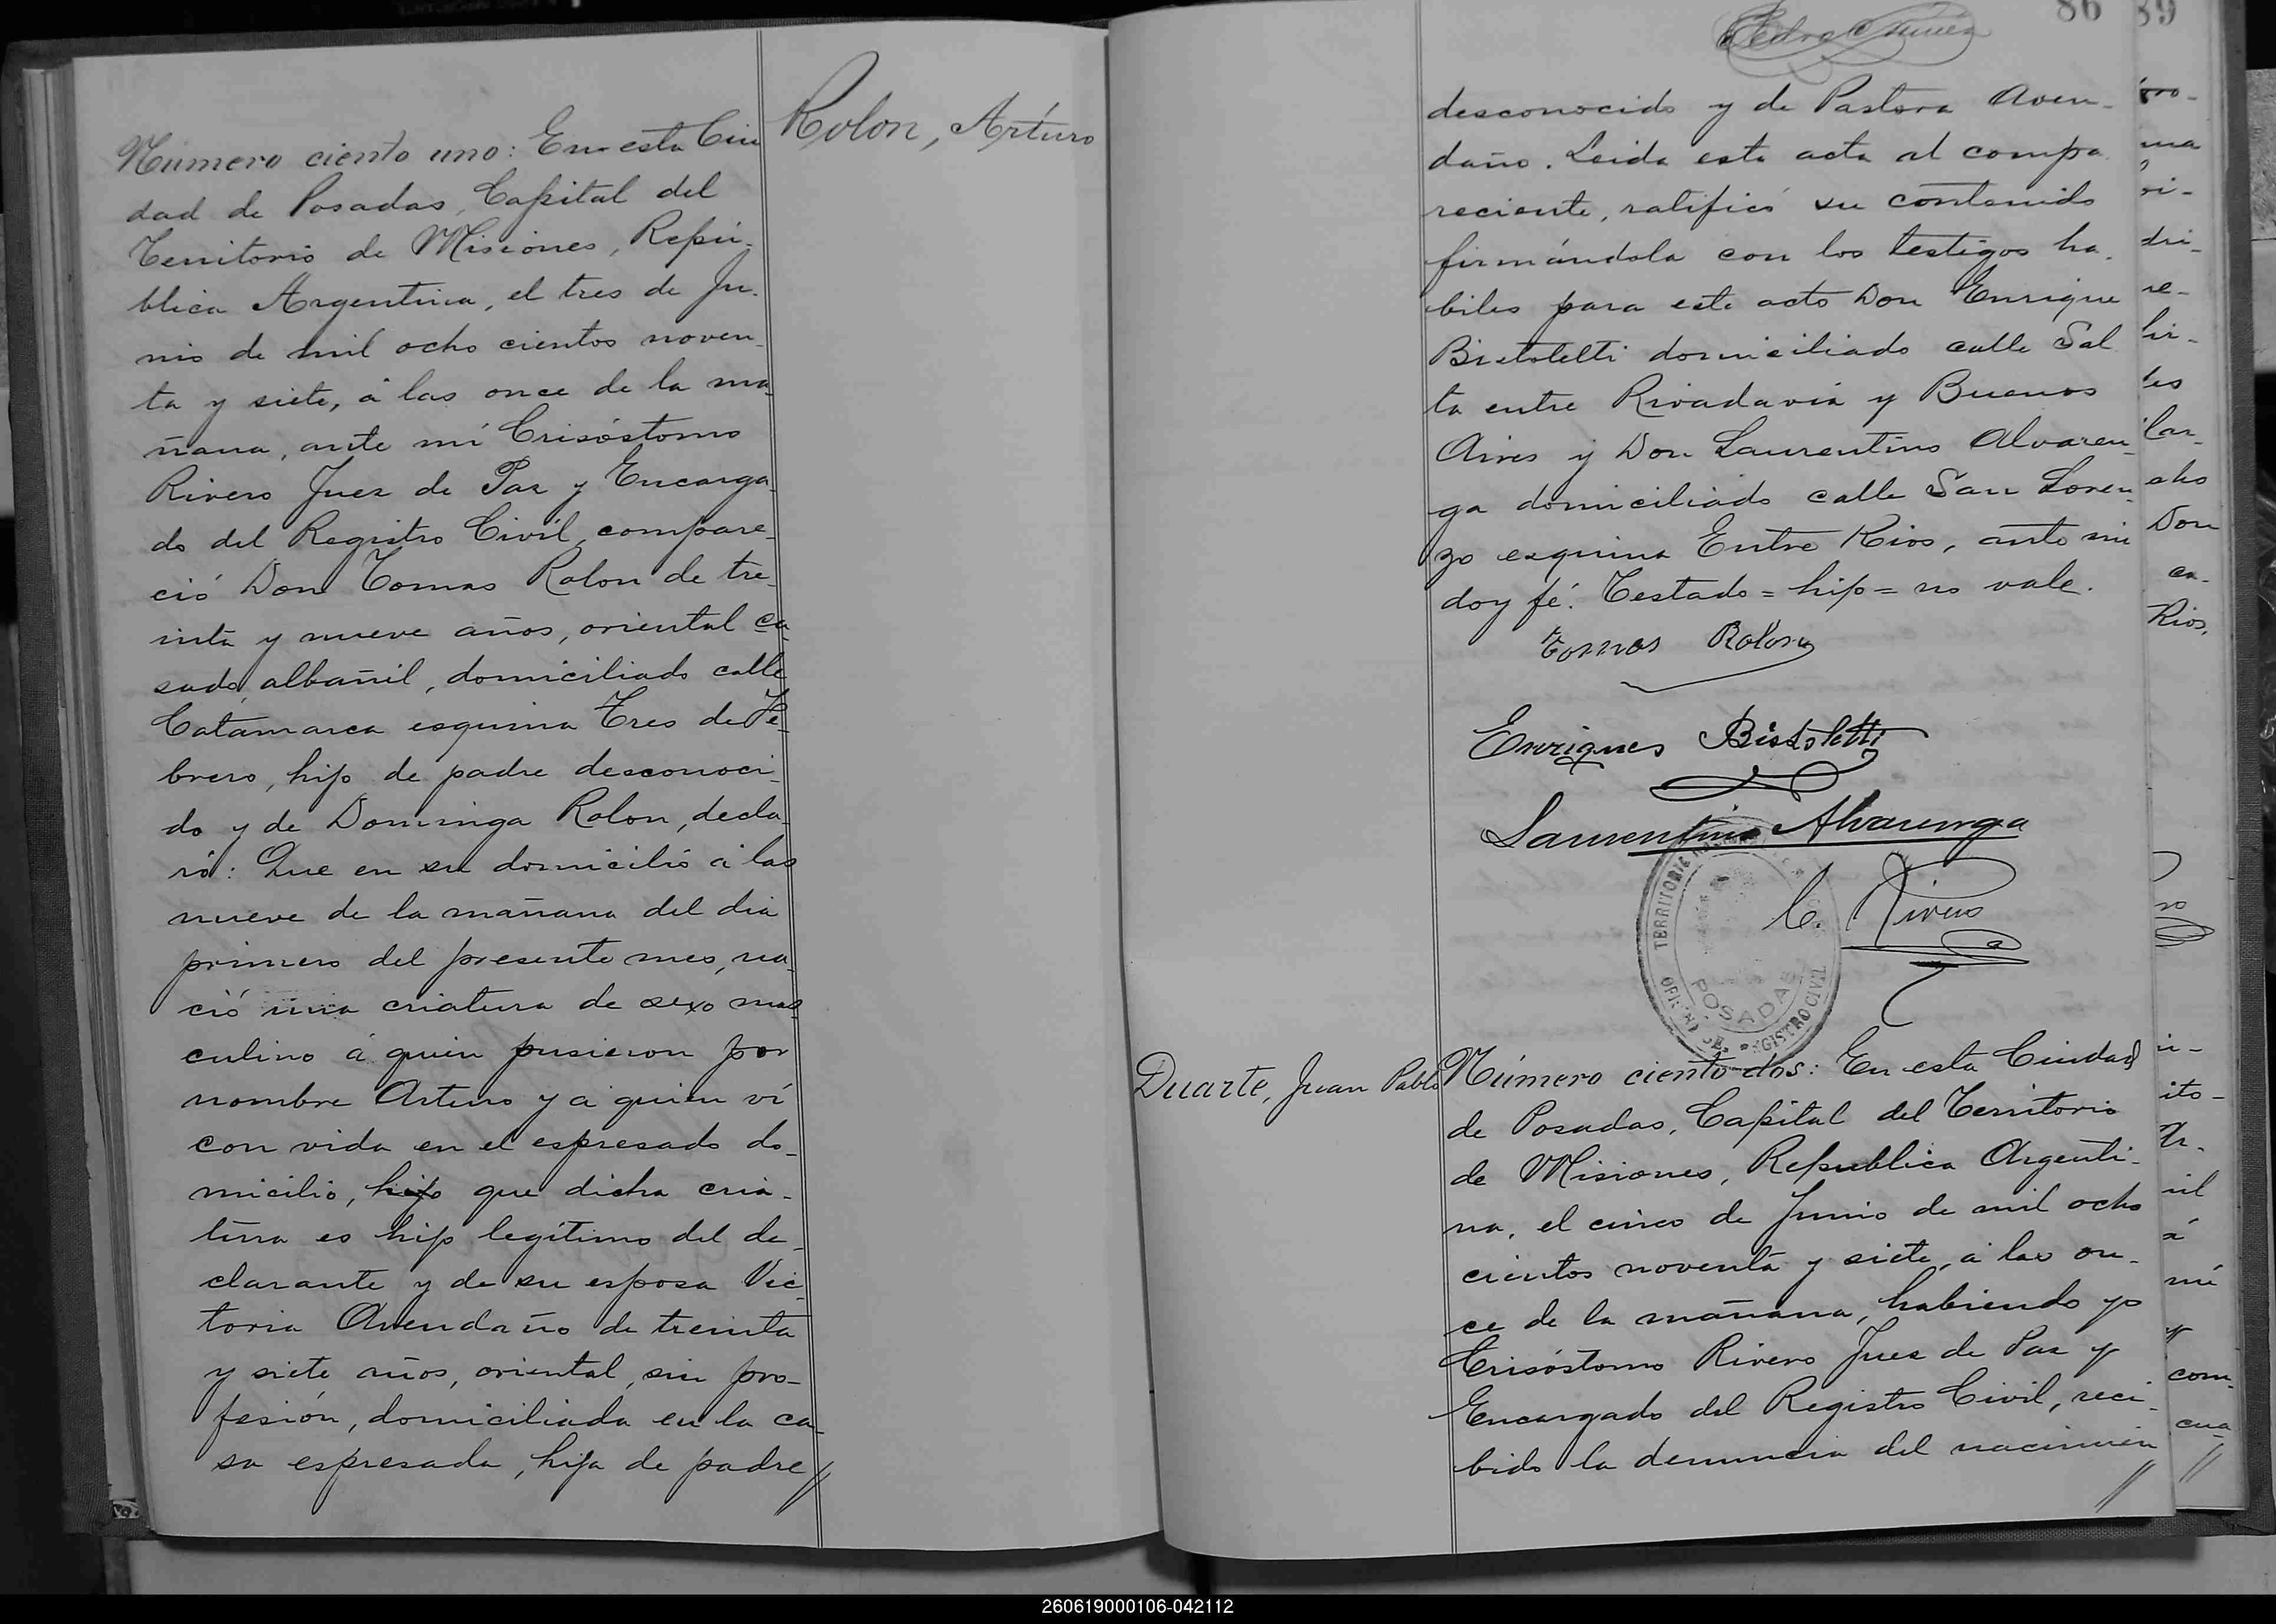 Rolon, Arturo
Número ciento uno: En esta Ciu
dad de Posadas, Capital del
Territorio de Misiones, Repú-
blica Argentina, el tres de Ju-
nio de mil ocho cientos noven-
ta y siete, á las once de la ma-
ñana, ante mí Crisóstomo
Rivero Juez de Paz y Encarga-
do del Registro Civil, compare-
ció Don Tomas Rolon de tre-
inta y nueve años, oriental ca-
sado, albañil, domiciliado calle
Catamarca esquina Tres de Fe-
brero, hijo de padre desconoci-
do y de Dominga Rolon, decla-
ró: Que en su domicilio á las
nueve de la mañana del dia
primero del presente mes, na-
ció una criatura de sexo mas
culino á quien pusieron por
nombre Arturo y á quien ví
con vida en el espresado do-
micilio, hijo que dicha cria-
tura es hijo legítimo del de-
clarante y de su esposa Vic-
toria Avendaño de treinta
y siete años, oriental, sin pro-
fesión, domiciliada en la ca-
sa espresada, hija de padre //
86
89
desconocido y de Pastora Aven-
daño. Leida esta acta al compa-
reciente, ratificó su contenido
firmándola con los testigos ha-
biles para este acto Don Enrique
Bistoletti domiciliado calle Sal
ta entre Rivadavia y Buenos
Aires y Don Laurentino Alvaren-
ga domiciliado calle San Loren-
zo esquina Entre Rios, ante mi
doy fé. Testado = hijo = no vale.
Tomas Rolon
Enriques Bistoletti
Laurentino Alvarenga
C. Rivero
TERRITORIO
POSADAS
REGISTRO CIVIL
Duarte, Juan Pablo
Número ciento dos: En esta Ciudad
de Posadas, Capital del Territorio
de Misiones, Republica Argenti-
na, el cinco de Junio de mil ocho
cientos noventa y siete, á las on-
ce de la mañana, habiendo yo
Crisóstomo Rivero Juez de Paz y
Encargado del Registro Civil, reci-
bido la denuncia del nacimien
//
ma
ri-
dri-
re-
tes
cho
Don
ca-
Rios.
ito-
Ar-
mil
á
mí
y
com-
cua-
//
260619000106-042112